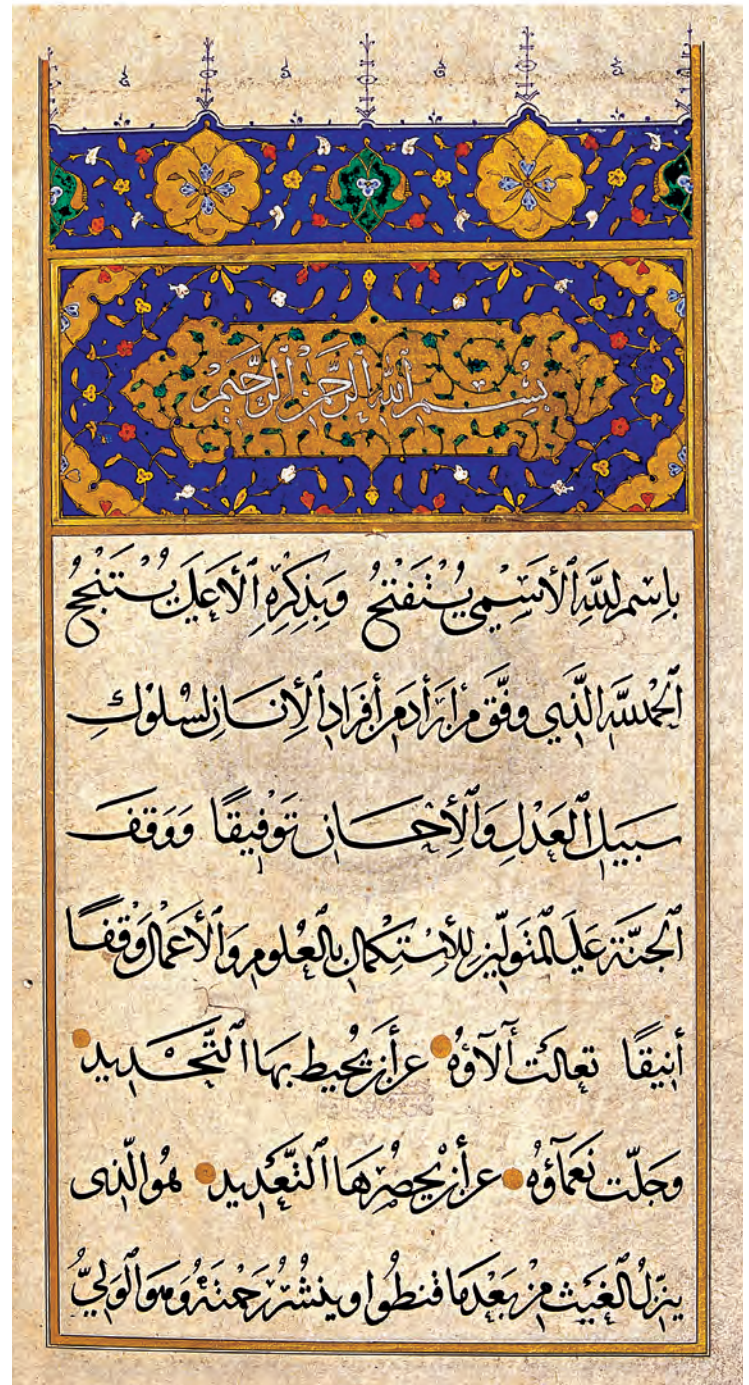 بِسْمِ ٱللَّهِ ٱلرَّحْمٰنِ ٱلرَّحِيمِ
بِاسْمِ اللَّهِ ٱلْأَسْمٰى يُسْتَفْتَحُ وَبِذِكْرِهِ ٱلْأَعْلَى يُسْتَنْجَحُ
ٱلْحَمْدُ لِلَّهِ الَّذِي وَفَّقَ مَنْ أَرَادَ مِنْ أَفْرَادِ ٱلْإِنْسَانِ لِسُلُوكِ
سَبِيلِ ٱلْعَدْلِ وَٱلْإِحْسَانِ تَوْفِيقًا وَوَقَفَ
ٱلْجَنَّةَ عَلَى الْمُتَوَلِّينَ لِلْاِسْتِكْمَالِ بِالْعُلُومِ وَٱلْأَعْمَالِ وَقْفًا
أَنِيقًا تَعَالَتْ آلَآؤُهُ عَنْ أَنْ يُحِيطَ بِهَا ٱلتَّحْدِيد
وَجَلَّتْ نَعْمَآؤُهُ عَنْ أَنْ يَحْصُرَهَا ٱلتَّعْدِيد هُوَ الَّذِى
يُنَزِّلُ ٱلْغَيْثَ مِنْ بَعْدِ مَا قَنَطُوا وَيَنْشُرُ رَحْمَتَهُ وَهُوَ ٱلْوَلِيُّ